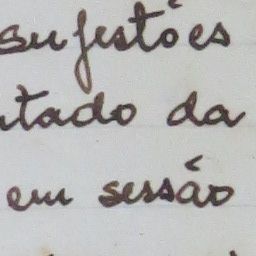 sugestões
ntado da
em sessão